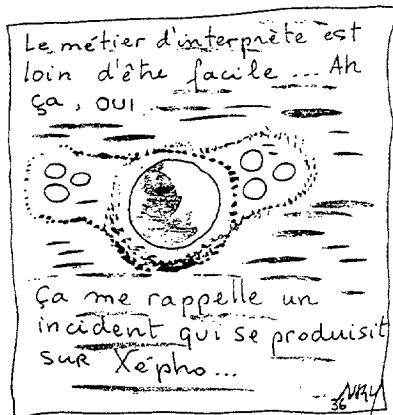 Le métier d'interprète est
loin d'être facile... Ah
ça, oui.
Ça me rappelle un
incident qui se produisit
sur Xépho...
36